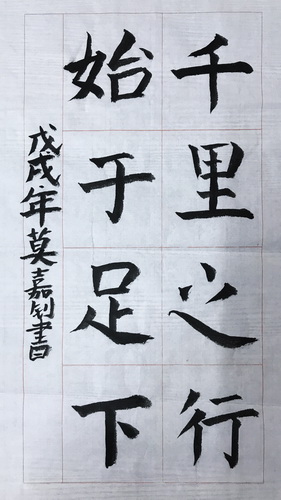 千里之行
始于足下
戊戌年莫嘉钊書